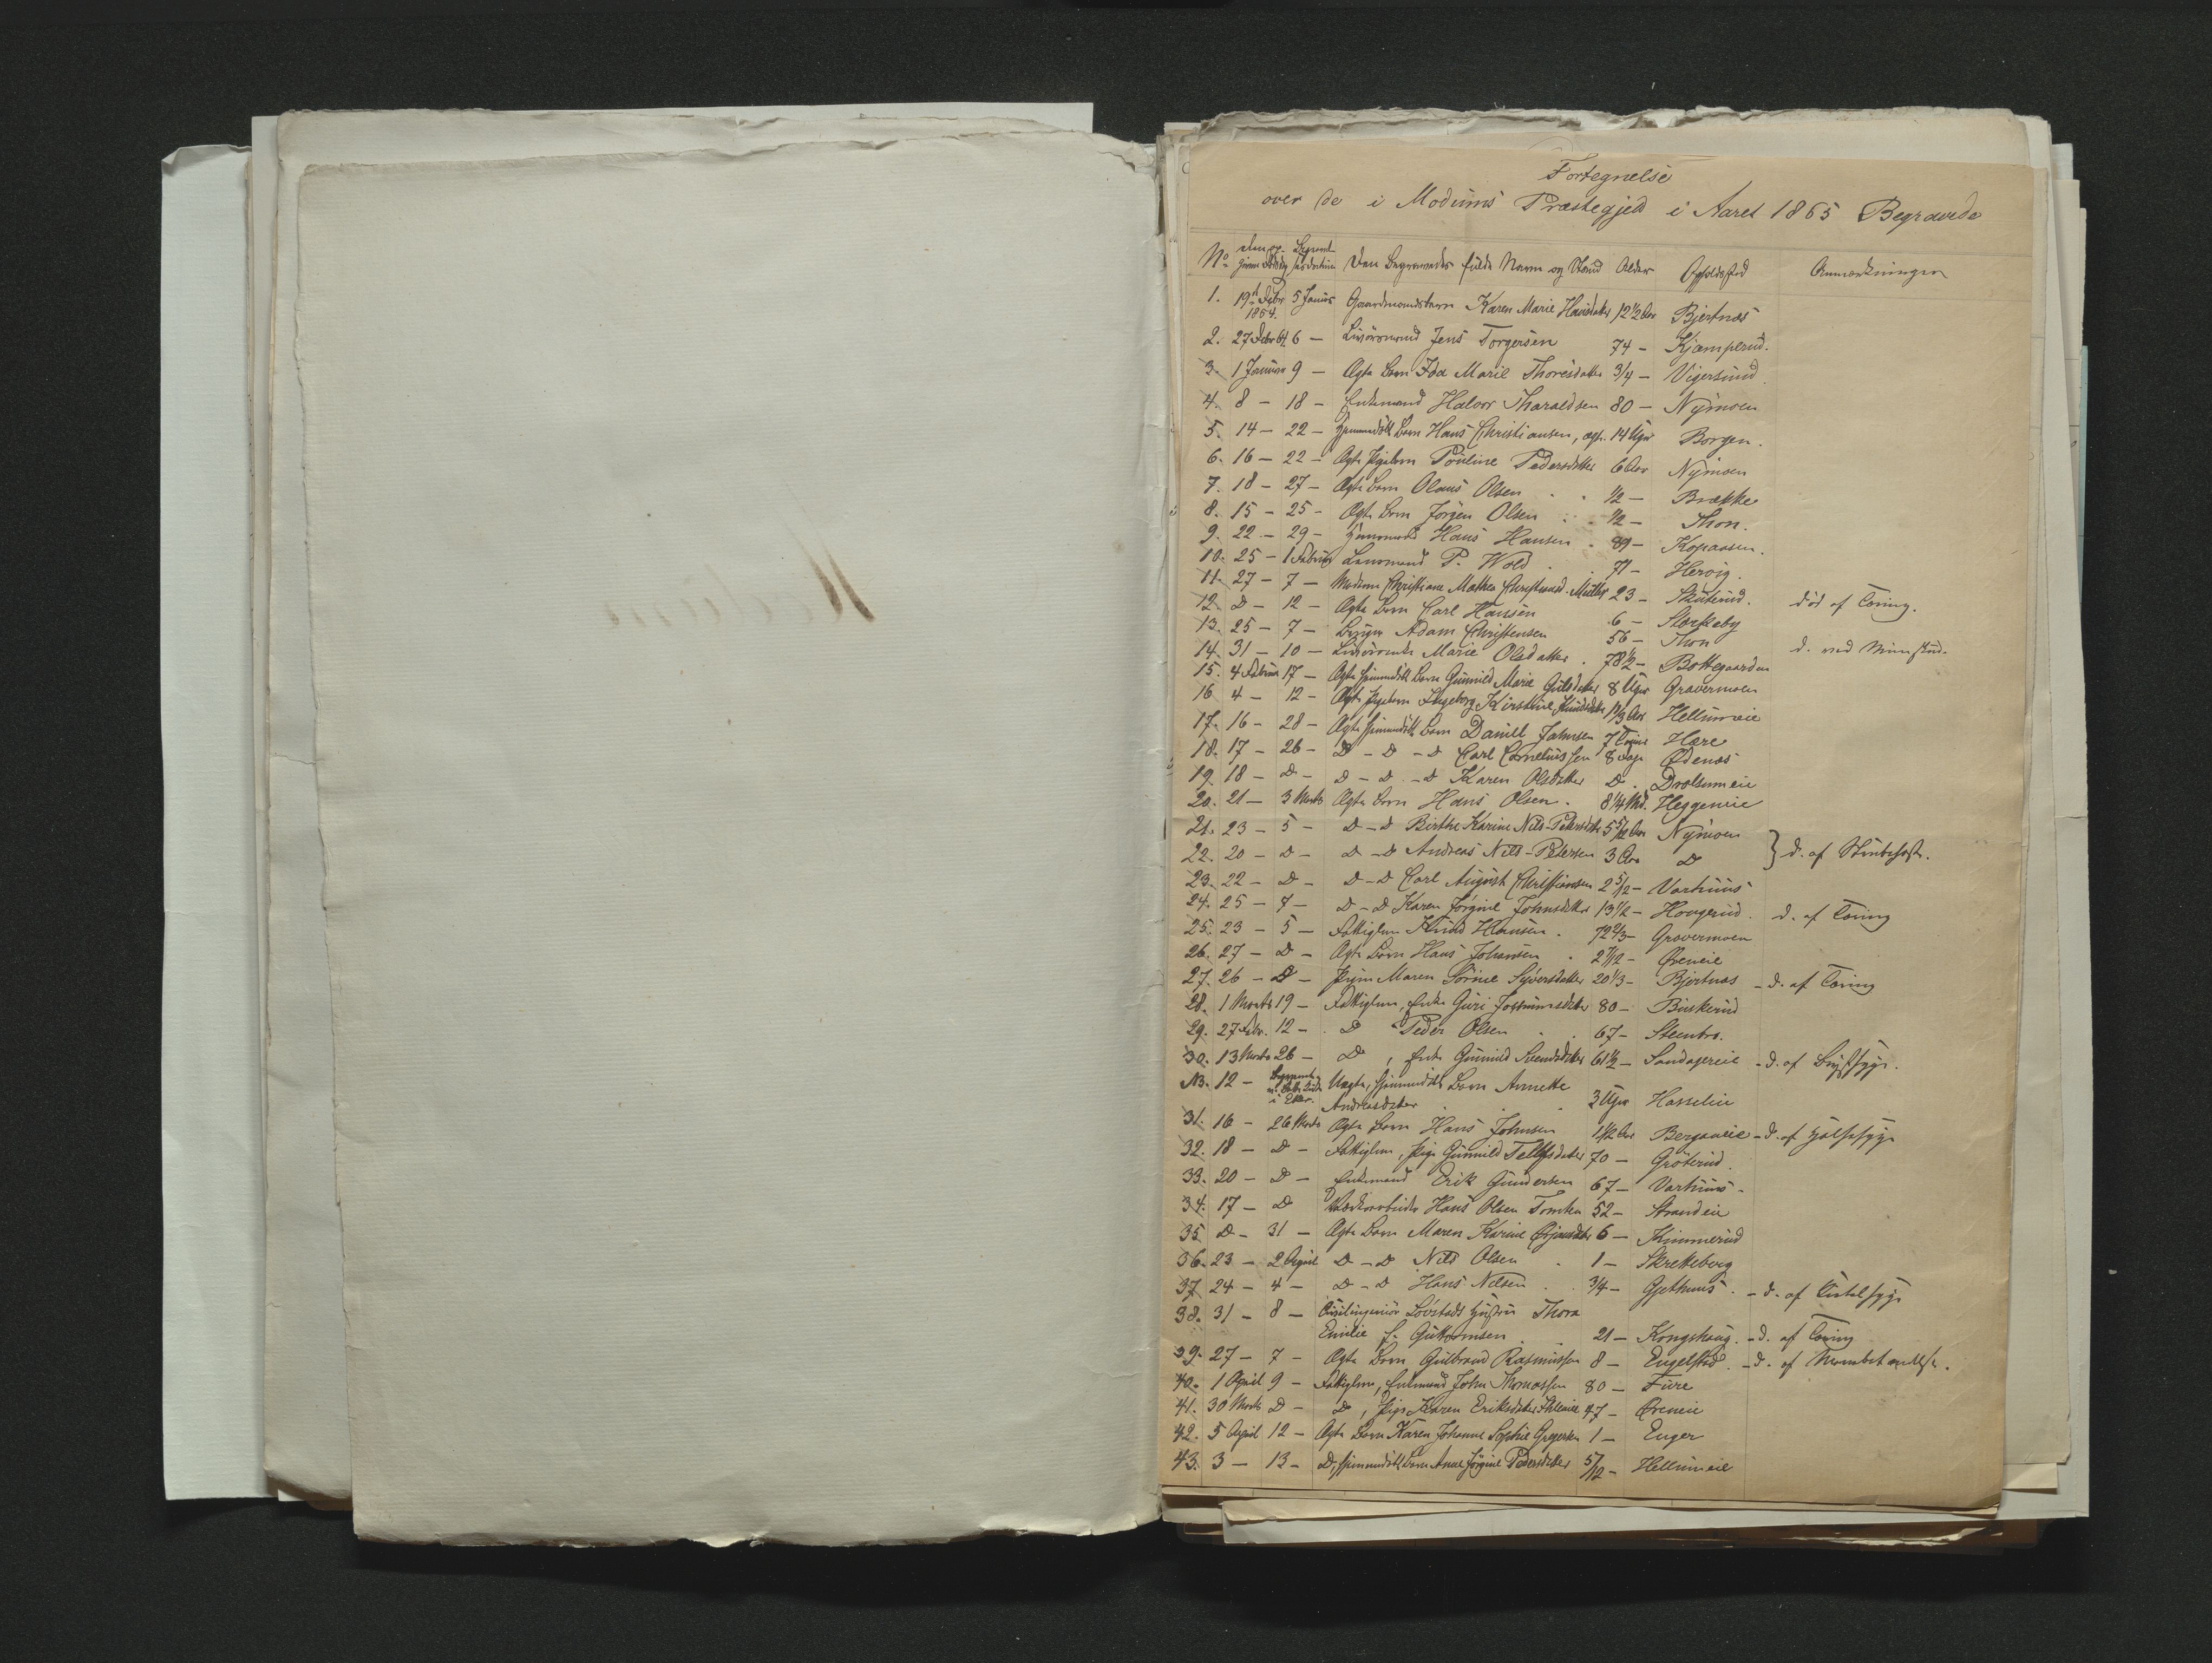 Fortegnelse
over de i Modums Præstegjeld i Aaret 1865 Begravede
No den Begravedes fulde Navn og Stand Alder Opholdssted Anmærkninger
1. 19 Debr 1864. 5 Januar Gaardmandsbarn Karen Marie Hansdatter 12 1/2 Aar Bjertnæs
2. 27 Debr 64 6 — Livøremand Jens Torgersen 74 — Kjæmperud.
3. 1 Januar 9 — Ægte Barn Ida Marie Thoresdatter 3/4 — Vigersund
4. 8 — 18 — Enkemand Halvor Tharaldsen 80 — Nymoen
5. 14 — 22 — hjemmedøbt Barn Hans Christiansen, ægt. 14 Uger Borgen.
6. 16 — 22 — Ægte Pigebarn Pouline Pedersdatter 6 Aar Nymoen
7. 18 — 27 — Ægte Barn Olaus Olsen 1/2 — Brække
8. 15 — 25 — Ægte Barn Jørgen Olsen 1/2 — Thon.
9. 22 — 29 — Huusmand Hans Hansen 89 — Kopaasen.
10. 25 — 1 Februar Lensmand P. Wold 71 — Hervig.
11. 27 — 7 — Madame Christiane Mathea Müller 23 — Skuterud. død af Tæring.
12. D — 12 — Ægte Barn Carl Hansen 6 — Størkeby
13. 25 — 7 — Adam Christensen 56 — Thon d. ved
14. 31 — 10 — Marie Olsdatter 78 1/2 — Bottegaarden
15. 4 Februar 17 — Ægte hjemmedøbt Barn Gunnild Marie 8 Uger Gravermoen
16. 4 — 12 — Ægte Pigebarn Ingeborg Kirstine Knudsdatter 1 1/3 Aar Hellumeie
17. 16 — 28 — Ægte hjemmedøbt Barn Daniel Jahnsen 7 Timer Hære
18. 17 — 26 — D — D — D Carl Corneliussen 8 Dage Ødenæs
19. 18 — D — D — D — D Karen Olsdatter D. Drolsumeie
20. 21 — 3 Marts Ægte Barn Hans Olsen. 8 1/4 Md. Heggeneie
21. 23 — 5 — D — D Birthe Karine Nils-Petersdatter 5 5/12 Aar Nymoen
22. 20 — D — D — D Andreas Nils-Petersen 3 Aar D } d. af Strubehoste.
23. 22 — D — D — D Carl August Christiansen 2 5/12 — Varhuus
24. 25 — 7 — D — D Karen Jørgine Johnsdatter 13 1/2 — Hougerud. d. af Tæring
25. 23 — 5 — Fattiglem Knud Hansen. 72 2/3 — Gravermoen
26. 27 — D — Ægte Barn Hans Johansen 2 7/12 — Øreneie
27. 26 — D — Pigen Maren Sørine Syversdatter 20 1/3 — Bjertnæs — d. af Tæring
28. 1 Marts 19 — Fattiglem, Enke Guri 80 — Buskerud
29. 27 Febr. 12 — D Peder Olsen 67 — Steenbro.
30. 13 Marts 26 — D, Enke Gunnild Svendsdatter 61 1/2 — Sandagereie — d. af Brystsyge.
NB. 12 — i Eker. Uægte, hjemmedøbt Barn Annette
Andreasdatter 3 Uger Hasseleie
31. 16 — 26 Marts Ægte Barn Hans Johnsen 1 1/2 Aar Berganeie — d. af Halssyge
32. 18 — D — Fattiglem, Pige Gunnild Tellefsdatter 70 — Grøterud.
33. 20 — D — Enkemand Erik Gundersen 67 — Varhuus —
34. 17 — D Hans Olsen 52 — Strandeie
35. D — 31 — Ægte Barn Maren Karine 6 — Kimmerud
36. 23 — 2 April D — D Nils Olsen 1 — Skretteberg
37. 24 — 4 — D — D Hans Nilsen 3/4 — Gjethuus. — d. af Kirtelsyge
38. 31 — 8 — Civilingeniør Løvstads Hustru Thora
Emilie f. Guttormsen 21 — Kongshaug. — d. af Tæring
39. 27 — 7 — Ægte Barn Gulbrand Rasmussen 8 — Engelstad. — d. af
40. 1 April 9 — Fattiglem, Enkemand John Thomassen 80 — Fure
41. 30 Marts D — D, Pige Karen Eriksdatter 47 — Øreneie
42. 5 April 12 — Ægte Barn Karen Johanne Sophie Gregersen 1 — Enger
43. 3 — 13 — D, hjemmedøbt Barn Anne Jørgine Pedersdatter 5/12 — Hellumeie